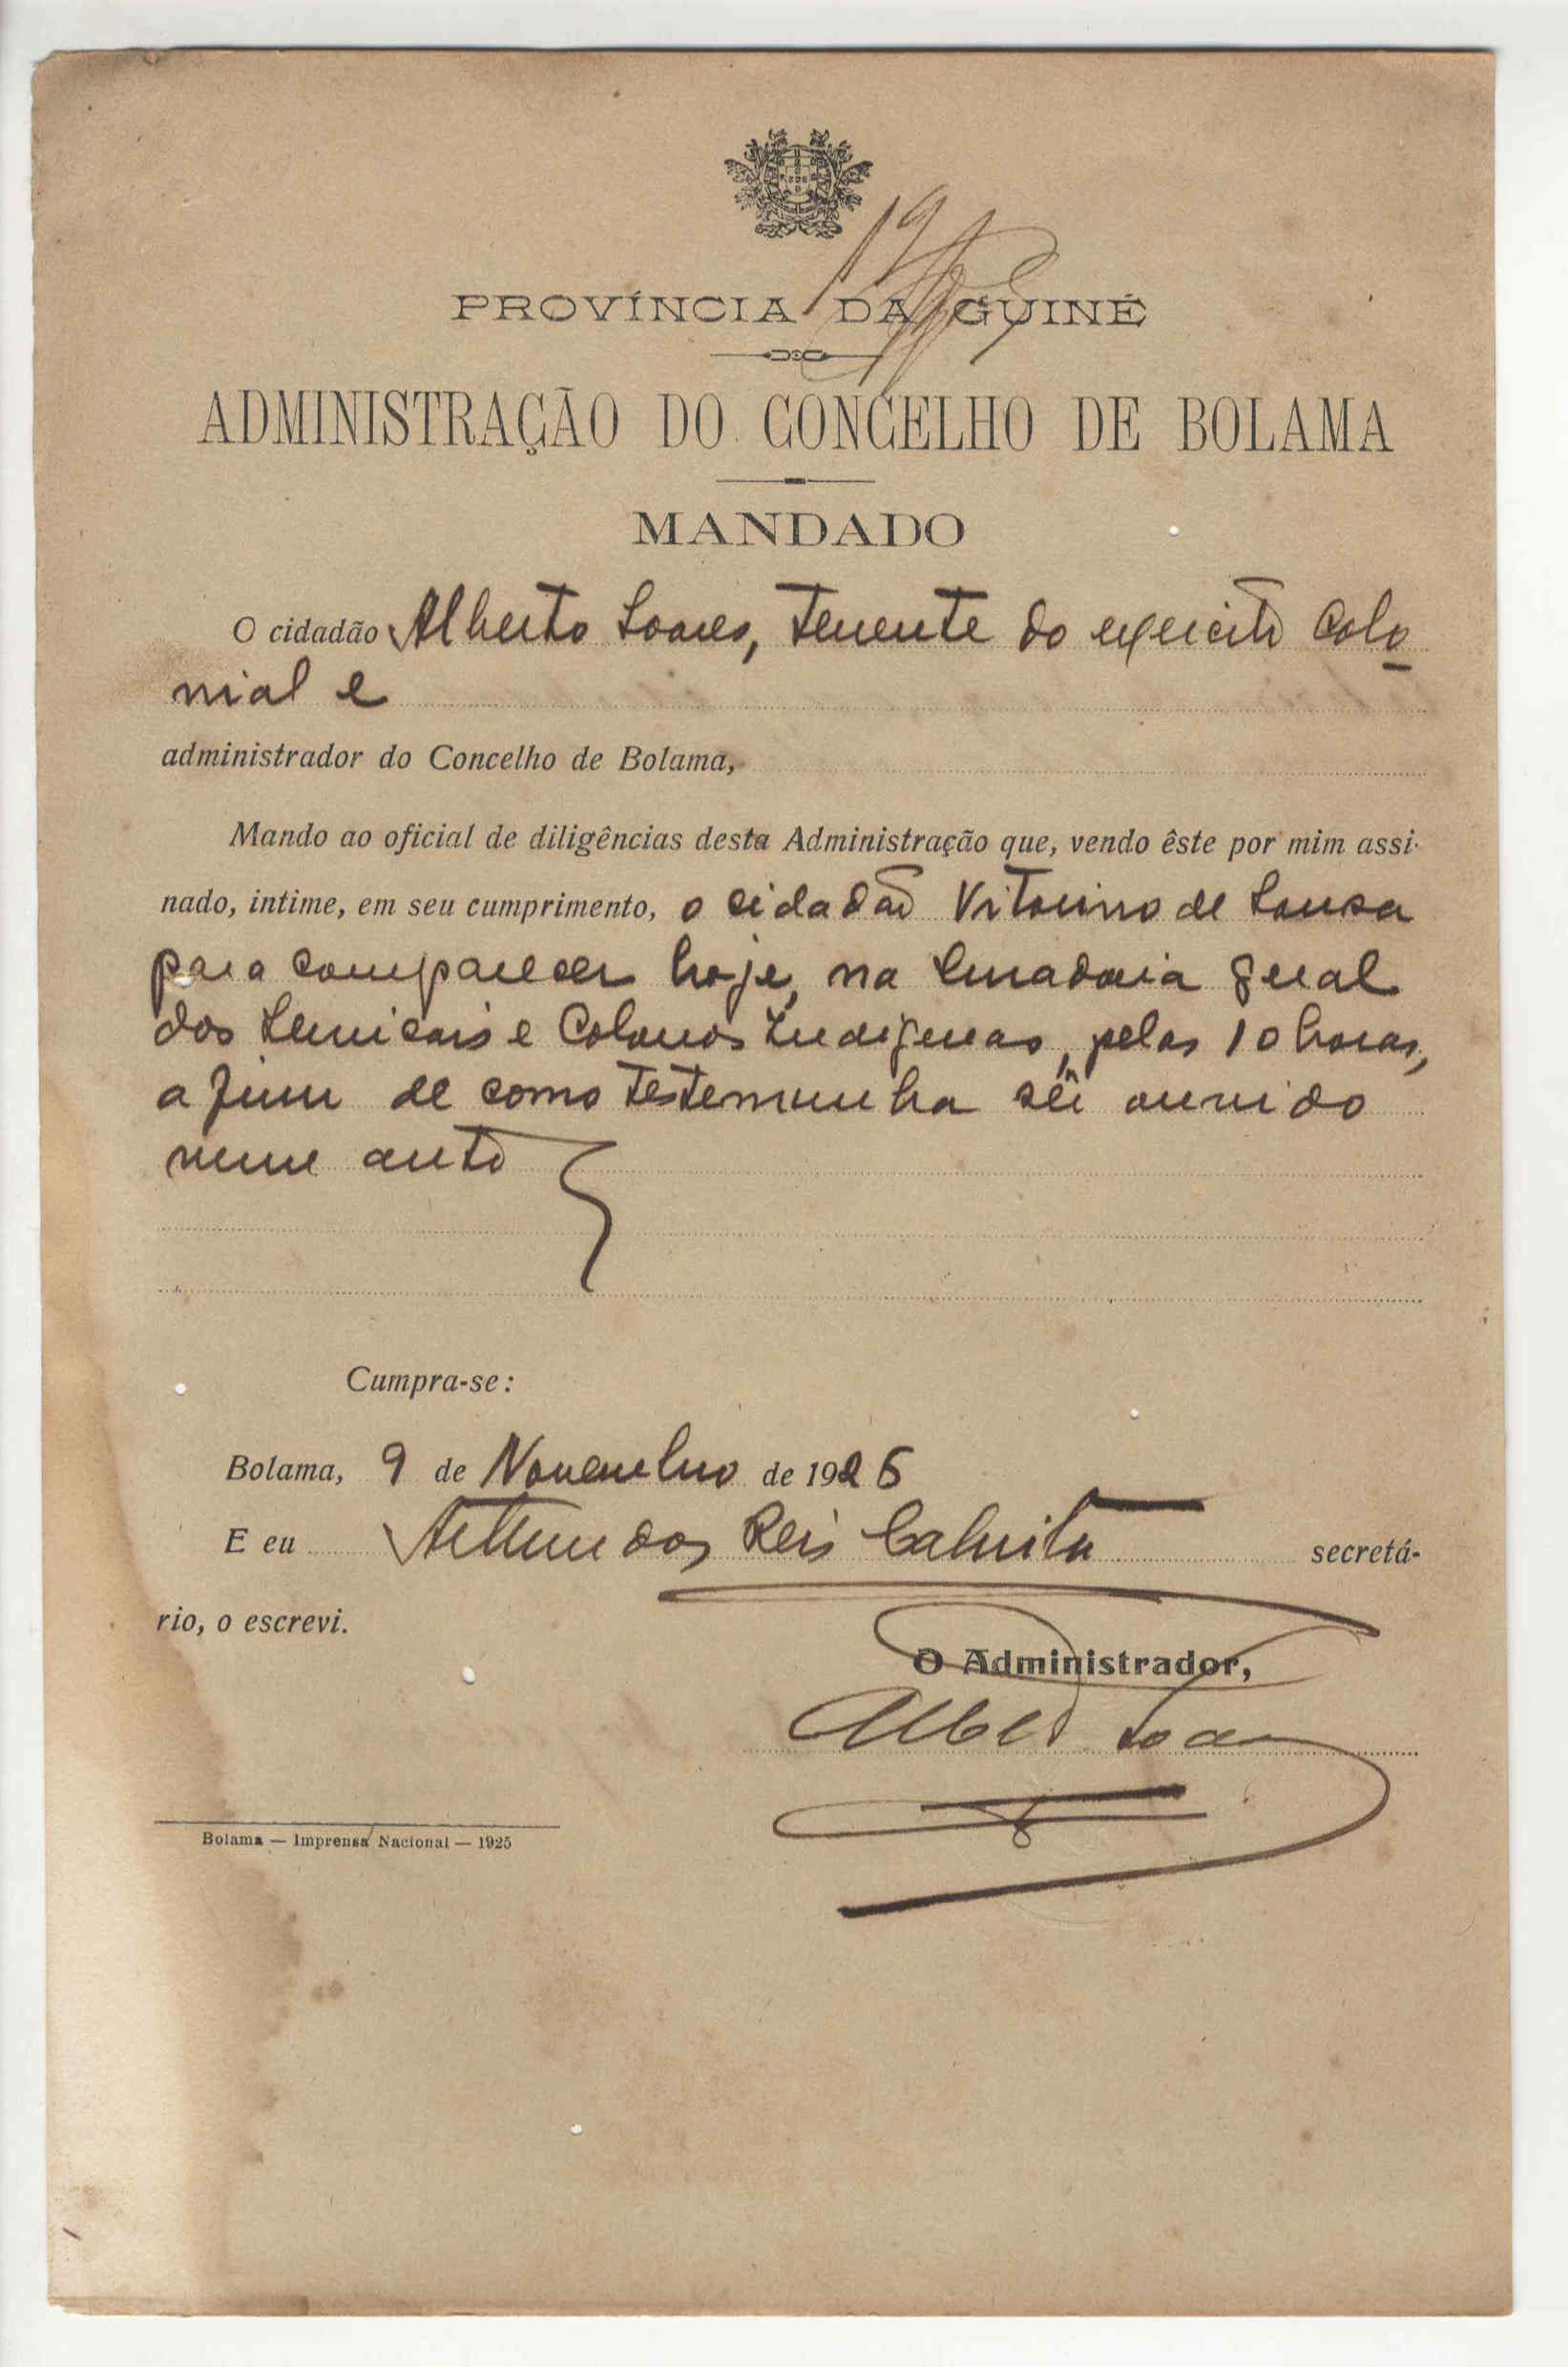 PROVÍNCIA DA GUINÉ
ADMINISTRAÇÃO DO CONCELHO DE BOLAMA
MANDADO
O cidadão Alberto Soares, Tenente do exercito Colo
nial e
administrador do Concelho de Bolama,
Mando ao oficial de diligências desta Administração que, vendo êste por mim assi-
nado, intime, em seu cumprimento, o cidadão Vitorino de Sousa
para comparecer hoje, na Curadoria geral
dos Serviçais e Colonos Indigenas, pelas 10 horas,
a fim de como testemunha sêr ouvido
num auto
Cumpra-se:
Bolama, 9 de Novembro de 1926
E eu dos Reis secretá-
rio, o escrevi.
O Administrador,
Alberto Soares
Bolama — Imprensa Nacional — 1925